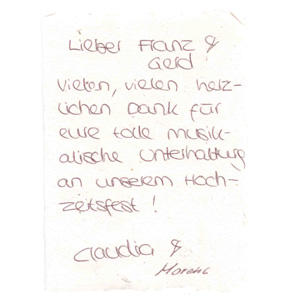 Lieber Franz &
Gerd
Vielen, vielen herz-
lichen Dank für
eure tolle musik-
alische Unterhaltung
an unserem Hoch-
zeitsfest!
Claudia &